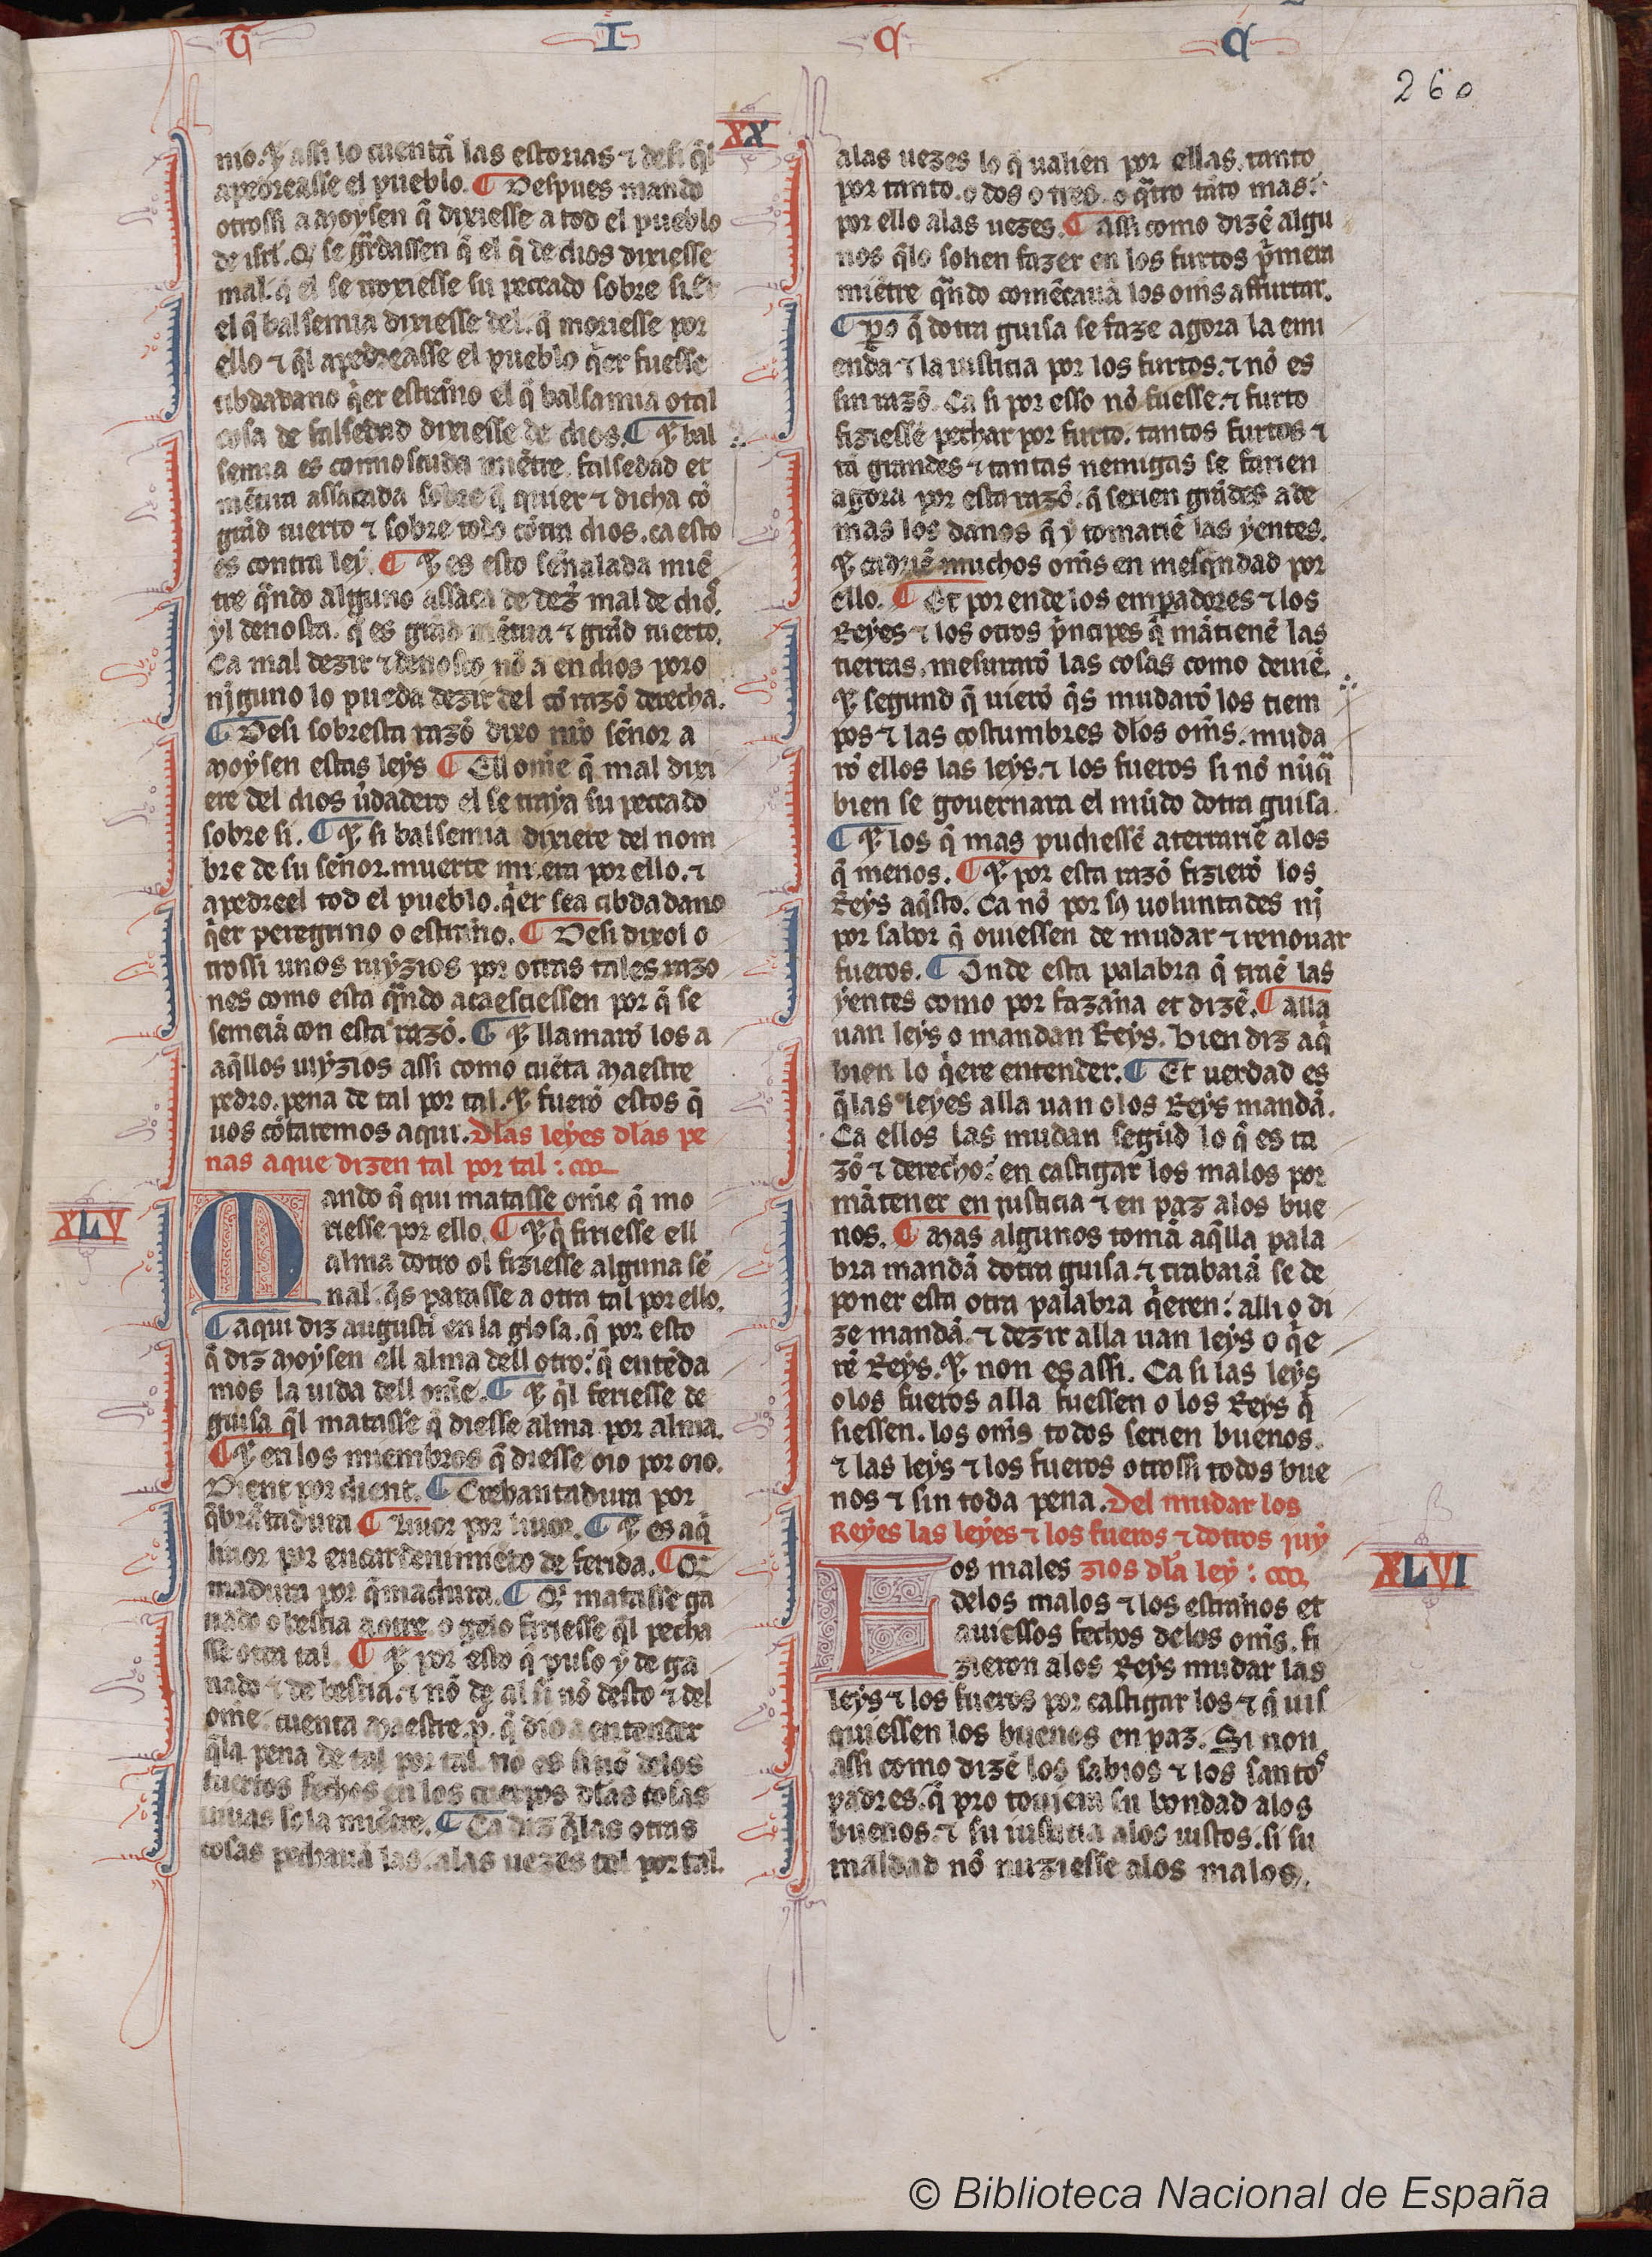 G I C C
260
XX
nio. ⁊ assi lo cuentã las estorias ⁊ desi q̃l
apedreasse el pueblo. ¶ Despues mando
otrossi a Moysen q̃ dixiesse a tod el pueblo
de isrl. Q̃ se gͣrdassen q̃ el q̃ de dios dixiesse
mal. q̃ el se troxiesse su peccado sobre si. Et
el q̃ balsemia dixiesse del. q̃ moriesse por
ello ⁊ q̃l apedreasse el pueblo q̇er fuesse
cibdadano q̇er estranno el q̃ balsamia o tal
cosa de falsedad dixiesse de dios. ¶ ⁊ bal
semia es connosçuda miẽtre falsedad et
mẽtira assacada sobre q̃ quier ⁊ dicha cõ
grãd tuerto ⁊ sobre todo cõtra dios. ca esto
es contra ley. ¶ ⁊ es esto sennalada miẽ
tre qͣndo alguno assaca de dez̃ mal de dio.
yl denosta. q̃ es grãd mẽtira ⁊ grãd tuerto.
Ca mal dezir ⁊ denosto nõ a en dios por o
nįguno lo pueda dezir del cõ razõ derecha.
¶ Desi sobresta razõ dixo nr̃o sẽnor a
Moysen estas leys ¶ Ell om̃e q̃ mal dixi
ere del dios ũdadero el se traya su peccado
sobre si. ¶ ⁊ si balsemia dixiere del nom
bre de su sẽnor. muerte mi era por ello. ⁊
apedreel tod el pueblo. q̇er sea cibdadano
q̇er peregrino o estrãno. ¶ Desi dixol o
trossi unos iuyzios por otras tales razo
nes como esta qͣndo acaesciessen por q̃ se
semeiã con esta razõ. ¶ ⁊ llamarõ los a
aq̃llos iuyzios assi como cuẽta Maestre
pedro. pena de tal por tal. ⁊ fuerõ estos q̃
uos cõtaremos aqui. Dlas leyes dlas pe
nas a que dizen tal por tal :
XLV
Mando q̃ qui matasse om̃e q̃ mo
riesse por ello. ¶ ⁊ q̃ firiesse ell
alma dotro ol fiziesse alguna sẽ
nal. q̃s parasse a otra tal por ello.
¶ aqui diz augustĩ en la glosa. q̃ por esto
q̃ diz Moysen ell alma dell otro: q̃ entẽda
mos la uida dell om̃e. ¶ ⁊ q̃l feriesse de
guisa q̃l matasse q̃ diesse alma por alma.
¶ ⁊ en los miembros q̃ diesse oio por oio.
Dient por dient. ¶ Crebantadura por
q̃brãtadura ¶ liuor por liuor. ¶ ⁊ es aq̃
liuor por encardenimiẽto de ferida. ¶ Q̃
madura por q̃madura. ¶ Q̃ matasse ga
nado o bestia a otre o gelo firiesse q̃l pecha
sse otra tal. ¶ ⁊ por esto q̃ puso y de ga
nado ⁊ de bestia. ⁊ nõ de al si nõ desto ⁊ del
om̃e. cuenta Maestre .p̃. q̃ dio a entender
q̃la pena de tal por tal. nõ es si nõ delos
tuertos fechos en los cuerpos dlas cosas
uiuas sola miẽtre. ¶ Ca diz q̃las otras
cosas pechauã las. alas uezes tal por tal.
alas uezes lo q̃ ualien por ellas. tanto
por tanto. o dos o tres. o qͣtro tãto mas:
por ello alas uezes. ¶ assi como dizẽ algu
nos q̃lo solien fazer en los furtos p̃mera
miẽtre qͣndo comẽçauã los om̃s a ffurtar.
¶ Pero q̃ dotra guisa se faze agora la emi
enda ⁊ la iusticia por los furtos. ⁊ nõ es
sin razõ. Ca si por esso nõ fuesse. ⁊ furto
fiziesse pechar por furto. tantos furtos ⁊
tã grandes ⁊ tantas nemigas se farien
agora por esta razõ. q̃ serien grãdes ade
mas los dannos q̃ y tomariẽ las yentes.
⁊ cadriẽ muchos om̃s en mesqͥndad por
ello. ¶ Et por ende los emperadores ⁊ los
Reyes ⁊ los otros pͥncipes q̃ mãtienẽ las
tierras. mesurarõ las cosas como deuiẽ.
⁊ segund q̃ uierõ q̃s mudarõ los tiem
pos ⁊ las costumbres dlos om̃s. muda
rõ ellos las leys. ⁊ los fueros si nõ nũqͣ
bien se gouernara el mũdo dotra guisa.
¶ ⁊ los q̃ mas pudiessẽ aterrariẽ alos
q̃ menos. ¶ ⁊ por esta razõ fizierõ los
Reys aq̃sto. Ca nõ por sꝯ uoluntades nį
por sabor q̃ ouiessen de mudar ⁊ renouar
fueros. ¶ Onde esta palabra q̃ traẽ las
yentes como por fazãna et dizẽ. ¶ alla
uan leys o mandan Reys. bien diz aq̃
bien lo q̇ere entender. ¶ Et uerdad es
q̃las leyes alla uan o los Reys mandã.
Ca ellos las mudan segũd lo q̃ es ra
zõ ⁊ derecho: en castigar los malos por
mãtener en iusticia ⁊ en paz alos bue
nos. ¶ Mas algunos tomã aq̃lla pala
bra mandã dotra guisa. ⁊ trabaiã se de
poner esta otra palabra q̇eren: alli o di
ze mandã. ⁊ dezir alla uan leys o q̇e
rẽ Reys. ⁊ non es assi. Ca si las leys
o los fueros alla fuessen o los Reys q̃
siessen. los om̃s todos serien buenos.
⁊ las leys ⁊ los fueros otrossi todos bue
nos ⁊ sin toda pena. Del mudar los
Reyes las leyes ⁊ los fueros ⁊ dotros iuy
XLVI
Los males zios dla ley :
delos malos ⁊ los estrãnos et
auiessos fechos delos om̃s. fi
zieron alos Reys mudar las
leys ⁊ los fueros por castigar los ⁊ q̃ uis
quiessen los buenos en paz. Si non
assi como dizẽ los sabios ⁊ los santos
padres. q̃ pro touiera su bondad alos
buenos. ⁊ su iusticia alos iustos. si su
maldad nõ nuziesse alos malos.
© Biblioteca Nacional de España